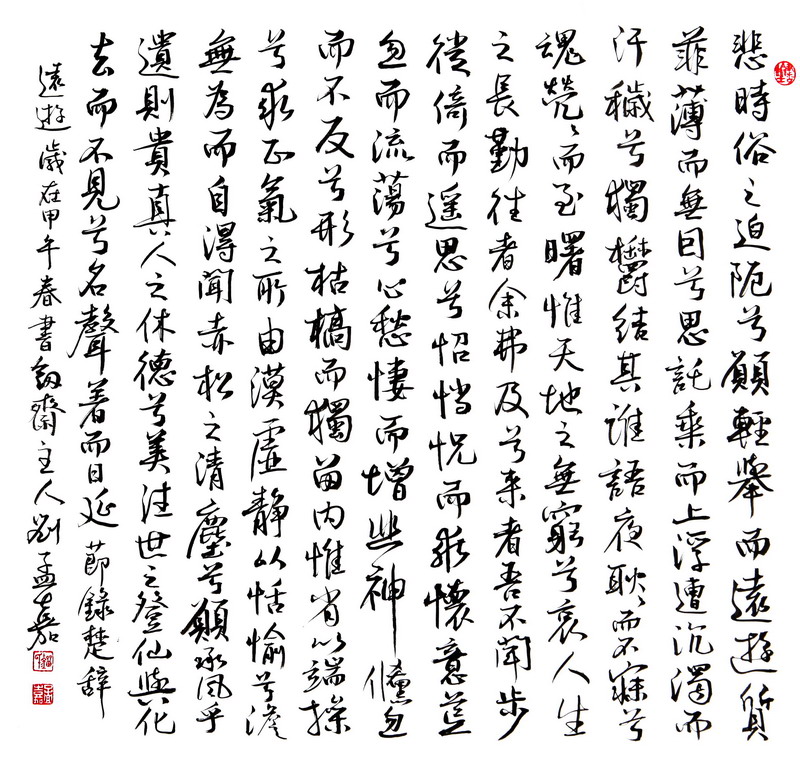 悲時俗之迫阨兮願輕舉而遠遊質
菲薄而無因兮思託乘而上浮遭沉濁而
汙穢兮獨鬱結其誰語夜耿〻而不寐兮
魂煢〻而至曙惟天地之無窮兮哀人生
之長勤往者余弗及兮来者吾不聞步
徙倚而遥思兮怊惝怳而乖懷意荒
忽而流蕩兮心愁悽而增悲神儵忽
而不反兮形枯槁而獨留内惟省以端操
兮求正氣之所由漠虛静以恬愉兮澹
無為而自得聞赤松之清塵兮願承風乎
遺則貴真人之休德兮美往世之登仙與化
去而不見兮名聲著而日延 節錄楚辭
遠遊 歲在甲午春書 齋主人劉孟嘉